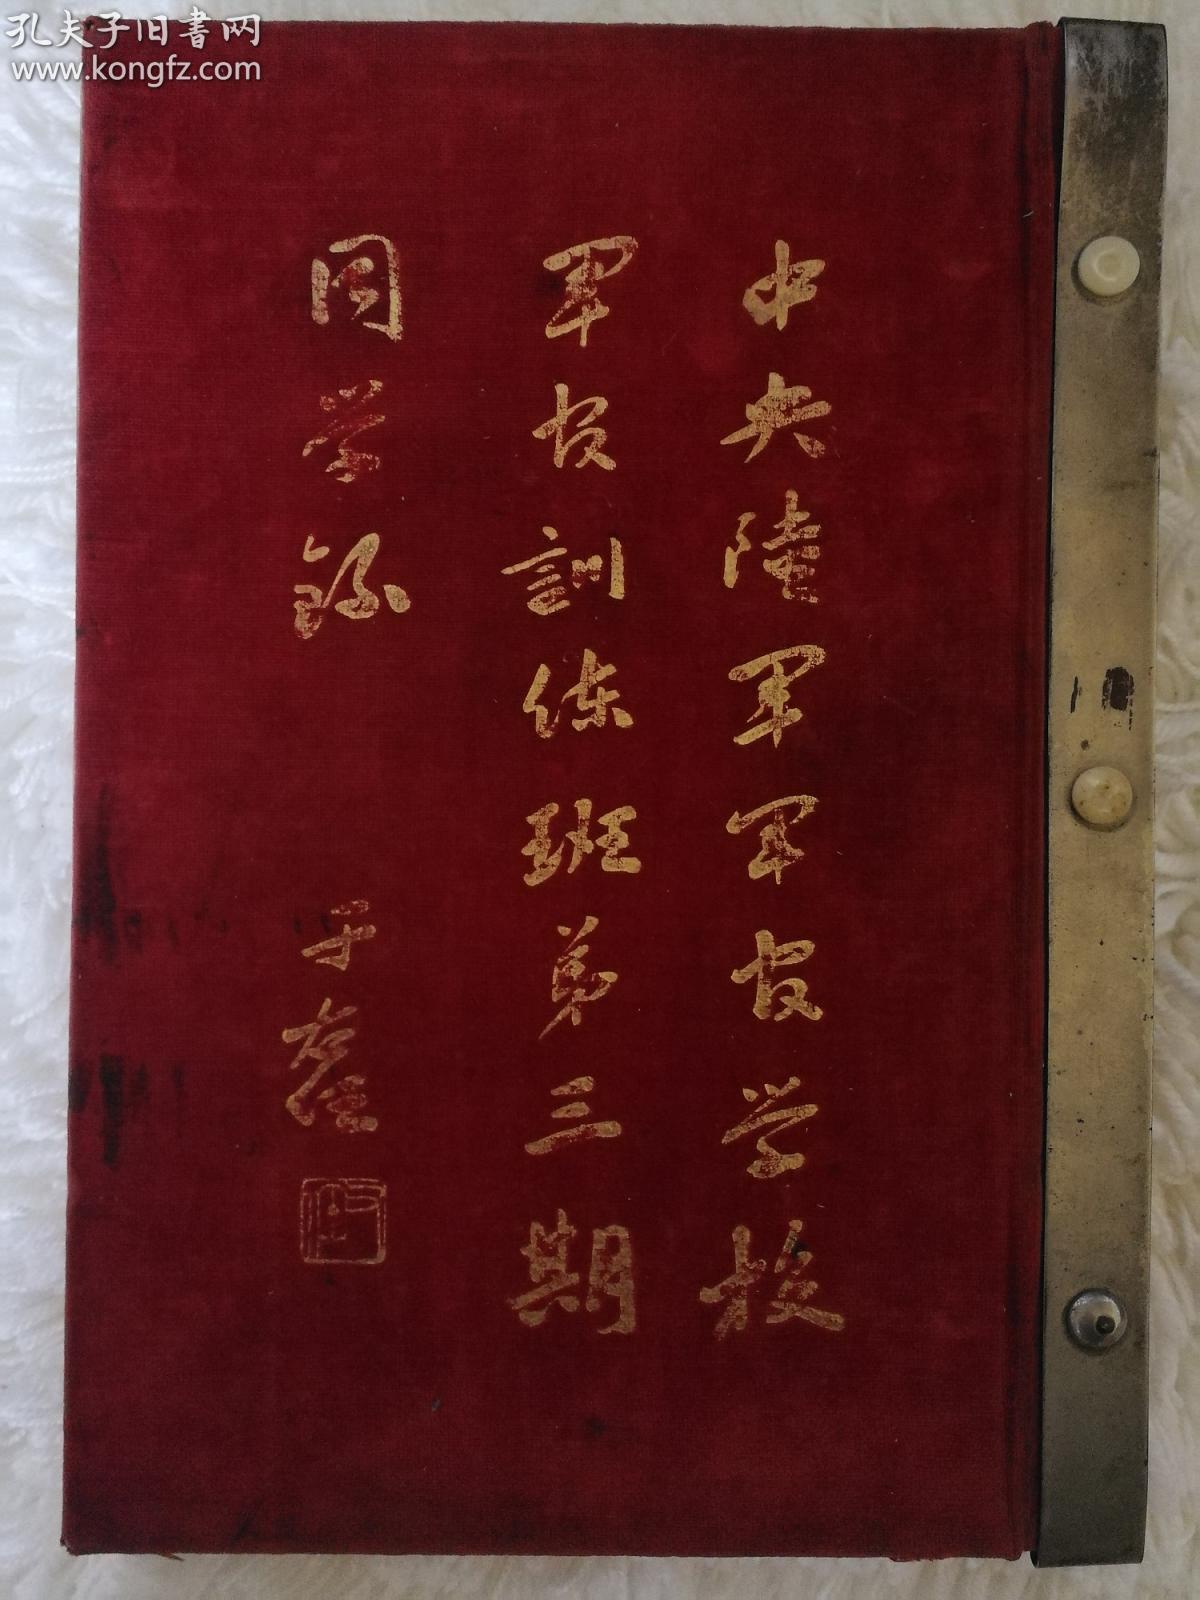 孔夫子旧書网
www.kongfz.com
中央陸軍軍官学校
軍官訓练班第三期
同学録